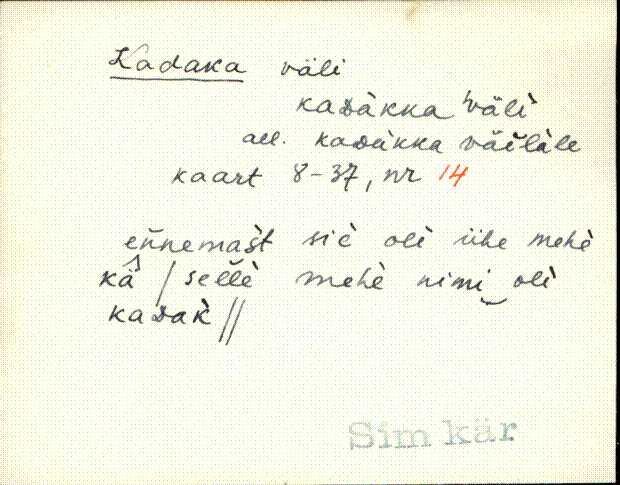 Kadaka väli
kaᴅàkka ˈvälì̬
all. kaᴅàkka väi̬làle
kaart 8-37, nr 14
en̆nemas̆t siè olì̬ ühe mehè
kä̂ / sel̆lè mehè nimi‿olì̬
kaᴅak̀ //
Sim kär